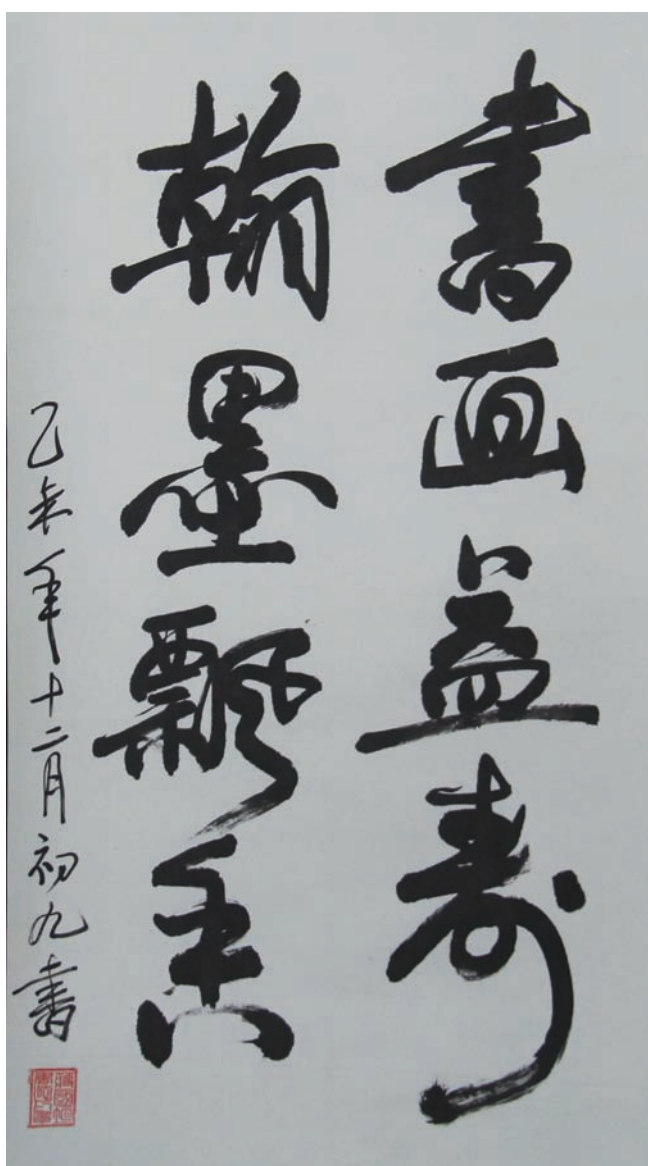 書画益寿
翰墨飘香
乙未年十二月初九書